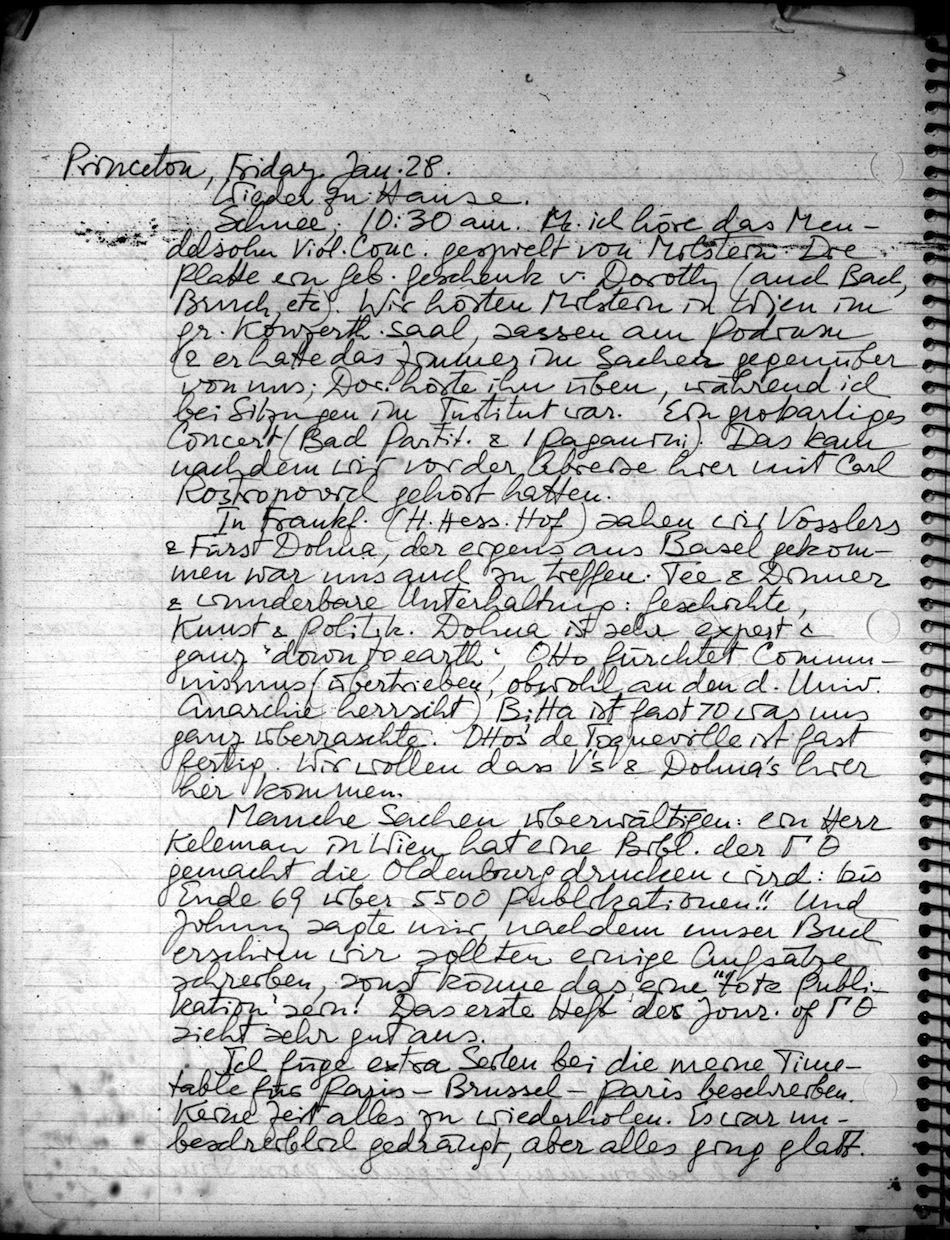 Princeton, Friday Jan. 28.
Wieder zu Hause.
Schnee; 10:30 am. ich höre das Men-
delsohn Viol. Conc. gespielt von Milstein. Die
Platte ein geb. geschenk v. Dorothy (auch Bach,
Bruch, etc). Wir hörten Milstein in Wien im
gr. Konzerth. saal, sassen am Podium
(& er hatte das Zimmer im Sacher gegenüber
von uns; Dor. hörte ihn üben, während ich
bei Sitzungen im Institut war. Ein großartiges
Concert (Bach Partit. & 1 Paganini). Das kam
nachdem wir vor der Abreise hier mit Carl
Rostropovich gehört hatten.
In Frankf. (H. Hess. Hof) sahen wir Vosslers
& Fürst Dohna, der eigens aus Basel gekom-
men war uns auch zu treffen. Tee & Dinner
& wunderbare Unterhaltung: Geschichte,
Kunst & Politik. Dohna ist sehr expert &
ganz "down to earth", Otto fürchtet Commu-
nismus (übertrieben, obwohl an den d. Univ.
Anarchie herrscht) Bitta ist fast 70 was uns
ganz überraschte. Otto's de Toqueville ist fast
fertig. Wir wollen dass V's & Dohna's hier
her kommen.
Manche Sachen überwältigen: ein Herr
Keleman in Wien hat eine Bibl. der Γ Θ
gemacht die Oldenbourg drucken wird: bis
Ende 69 über 5500 Publikationen!! Und
Johnny sagte mir, nachdem unser Buch
erschien wir sollten einige Aufsätze
schreiben, sonst könne das eine "tote Publi-
kation" sein! Das erste Heft des Jour. of Γ Θ
sieht sehr gut aus.
Ich füge extra Seiten bei die meine Time-
table für Paris – Brussel – Paris beschreiben.
Keine Zeit alles zu wiederholen. Es war un-
beschreiblich gedrängt, aber alles ging glatt.